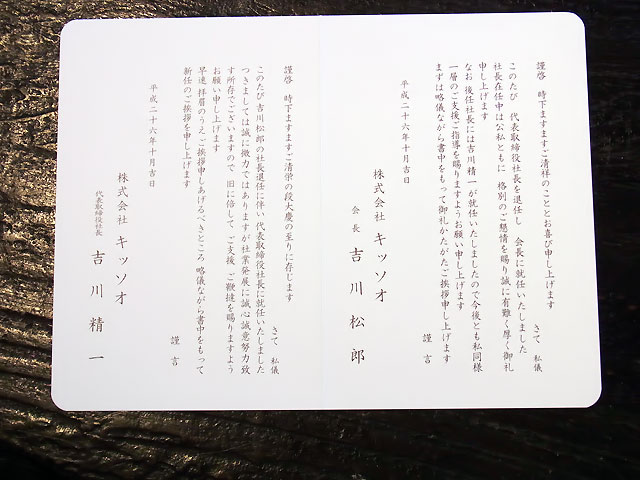 謹啓　時下ますますご清祥のこととお喜び申し上げます
さて　私儀
このたび　代表取締役社長を退任し　会長に就任いたしました
社長在任中は公私ともに　格別のご懇情を賜り誠に有難く厚く御礼
申し上げます
なお　後任社長には吉川精一が就任いたしましたので今後とも私同様
一層のご支援ご指導を賜りますようお願い申し上げます
まずは略儀ながら書中をもって御礼かたがたご挨拶申し上げます
謹言
平成二十六年十月吉日
株式会社 キッソオ
会長　吉川松郎
謹啓　時下ますますご清栄の段大慶の至りに存じます
さて　私儀
このたび吉川松郎の社長退任に伴い 代表取締役社長に就任いたしました
つきましては誠に微力ではありますが社業発展に誠心誠意努力致
す所存でございますので　旧に倍して　ご支援　ご鞭撻を賜りますよう
お願い申し上げます
早速 拝眉のうえ ご挨拶申しあげるべきところ 略儀ながら書中をもって
新任のご挨拶を申し上げます
謹言
平成二十六年十月吉日
株式会社 キッソオ
代表取締役社長　吉川精一